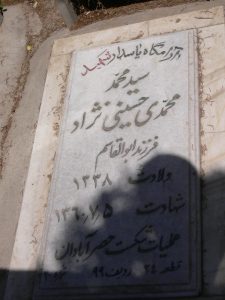 آرامگاه پاسدار شهید
سید محمد
محمدی حسینی نژاد
فرزند ابوالقاسم
ولادت ۱۳۳۸
شهادت ۱۳۶۰/۷/۵
عملیات شکست حصر آبادان
قطعه ۲۴ ردیف ۹۹